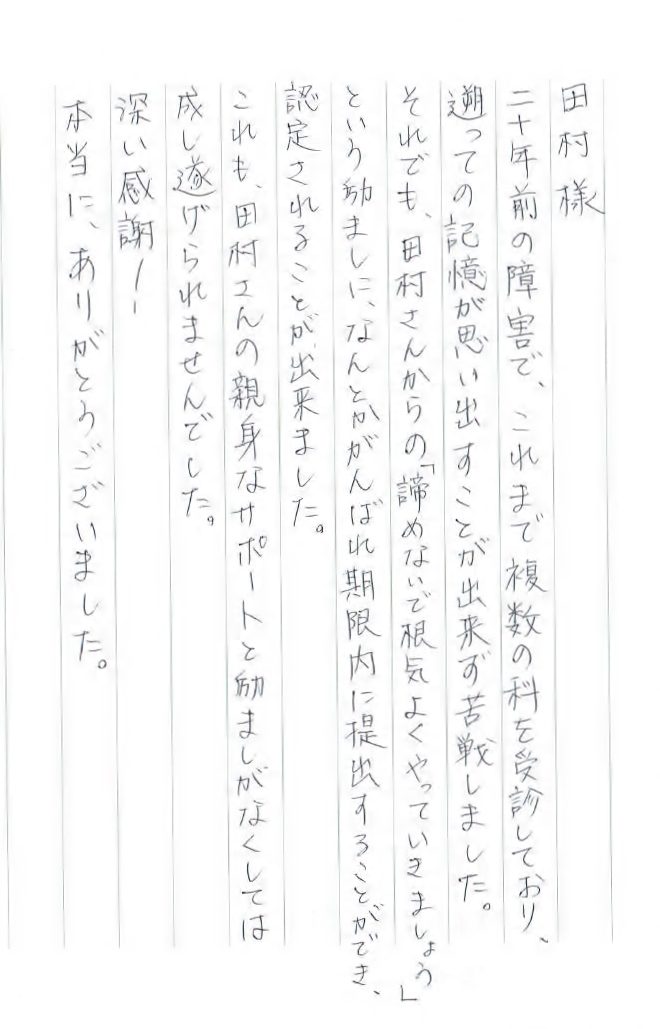 田村様
二十年前の障害で、これまで複数の科を受診しており、
遡っての記憶が思い出すことが出来ず苦戦しました。
それでも、田村さんからの「諦めないで根気よくやっていきましょう」
という励ましに、なんとかがんばれ期限内に提出することができ、
認定されることが出来ました。
これも、田村さんの親身なサポートと励ましがなくしては
成し遂げられませんでした。
深い感謝!
本当に、ありがとうございました。